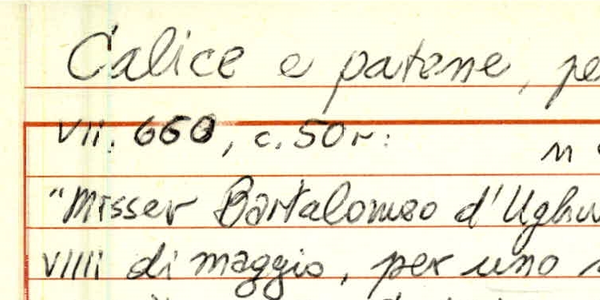 Calice e patene, pe
VII. 660, c. 50r:
"Misser Bartalomeo d'Ughu
VIIII di maggio, per uno